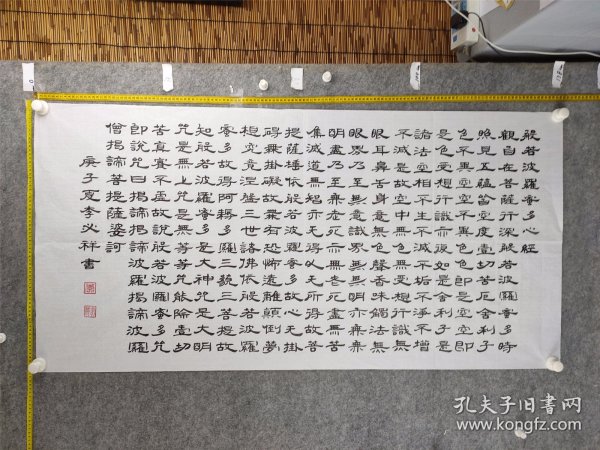 般若波羅蜜多心經
觀自在菩薩行深般若波羅蜜多時
照見五蘊皆空度壹切苦厄舍利子
色不異空空不異色色即是空空即
是色受想行識亦復如是舍利子是
諸法空相不生不滅不垢不淨不增
不減是故空中無色無受想行識無
眼耳鼻舌身意無色聲香味觸法無
眼界乃至無意識界無無明亦無無
明盡乃至無老死亦無老死盡無苦
集滅道無智亦無得以無所得故菩
提薩埵依般若波羅蜜多故心無掛
礙無掛礙故無有恐怖遠離顛倒夢
想究竟涅槃三世諸佛依般若波羅
蜜多故得阿耨多羅三藐三菩提故
知般若波羅蜜多是大神咒是大明
咒是無上咒是無等等咒能除壹切
苦真實不虛故說般若波羅蜜多咒
即說咒曰揭諦揭諦波羅揭諦波羅
僧揭諦菩提薩婆訶
庚子夏李必祥書
孔夫子旧书网
www.kongfz.com